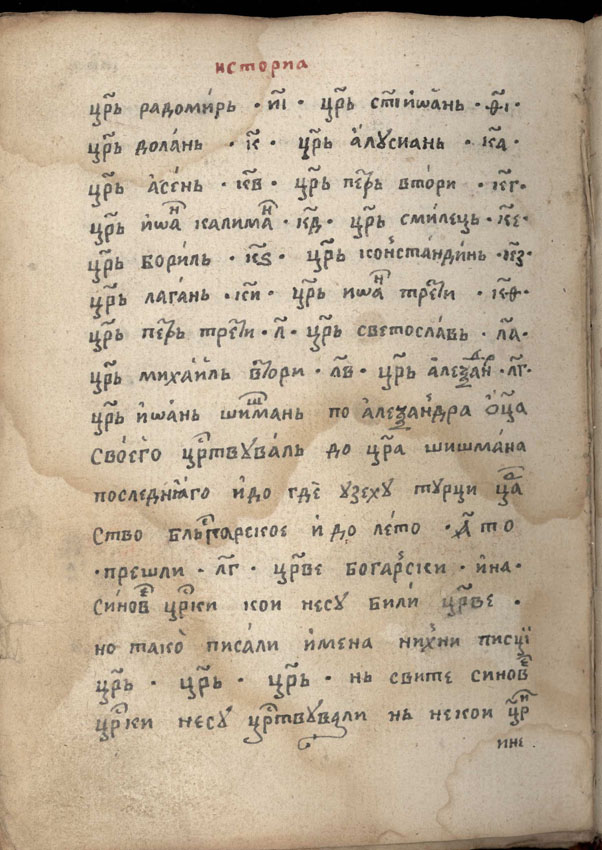 историа
цр҃ь радоми́рь · и҃і · цр҃ь ст҃і и҆ѡа́нь · ѳ҃і ·
цр҃ь дола́нь · к҃ · цр҃ь а҆лꙋсиань · к҃а ·
цр҃ь а҆се́нь · к҃в · цр҃ь пеⷮрь втори · к҃г ·
цр҃ь и҆ѡаⷩ҇ калимаⷩ҇ · к҃д · цр҃ь смиле́ць · к҃е ·
цр҃ь бориль · к҃ѕ · цр҃ь коⷩ҇станди́нь · к҃з ·
цр҃ь лага́нь · к҃и · цр҃ь иѡаⷩ҇ треⷮи · к҃ѳ ·
цр҃ь пеⷮрь треⷮи · л҃ · цр҃ь светославь · л҃а ·
цр҃ь михаи́ль вⷮори · л҃в · цр҃ь а҆леѯаⷩ҇дⷬ҇ · л҃г ·
цр҃ь и҆ѡа́нь шиⷲма́нь по а҆леѯа́ндра ѻ҆ц҃а
свое́го црⷭ҇твꙋва́ль до цр҃а шишма́на
последнꙗго и҆ до гдѐ ꙋзехꙋ тꙋрци цⷬ҇а
ство бльгарское и҆ до ле́то · а҃то
· прешли · л҃г · цр҃ве богаⷬ҇ски · и҆ на ·
си́новⷷ црⷭ҇ки кои несꙋ били́ цр҃ве ·
но тако̀ писа́ли и҆мена ниⷯни писцї
цр҃ь · цр҃ь · цр҃ь · нь свите синовⷷ
црⷭ҇ки несꙋ̀ црⷭ҇твꙋвали нь некои цр҃и
ине